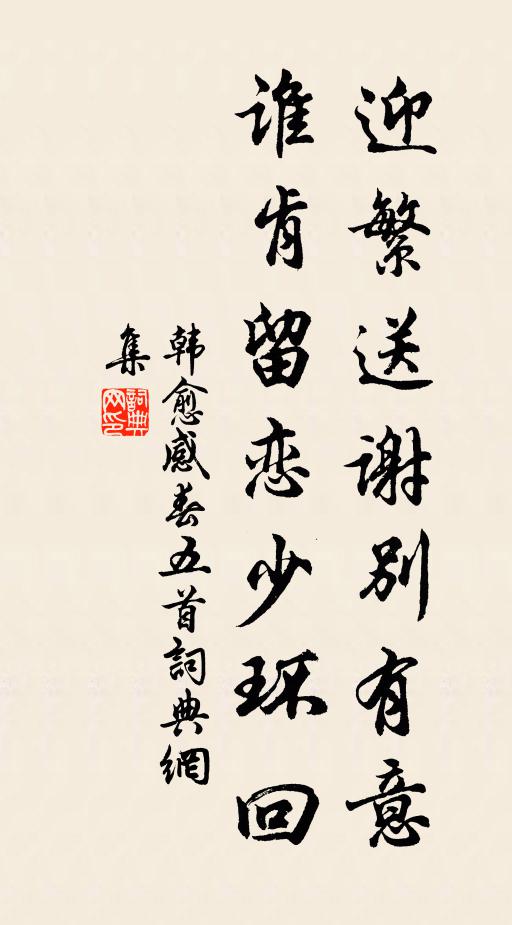 迎繁送谢别有意
谁肯留恋少环回
韩愈感春五首詞典網
集
詞典
网印